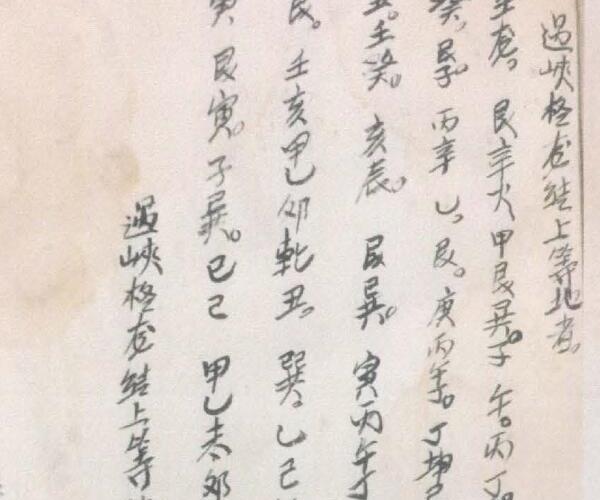 過峽格龙結上等地者。
龙。艮辛火甲艮巽。子午。丙丁
癸。艮子。丙辛乙。艮。庚丙午。丁坤
丑。壬癸。亥辰。艮巽。寅丙午丁
艮。壬亥甲乙卯乾丑。巽。乙己
寅艮寅。子巽。巳己甲乙未卯
過峽格龙結上等